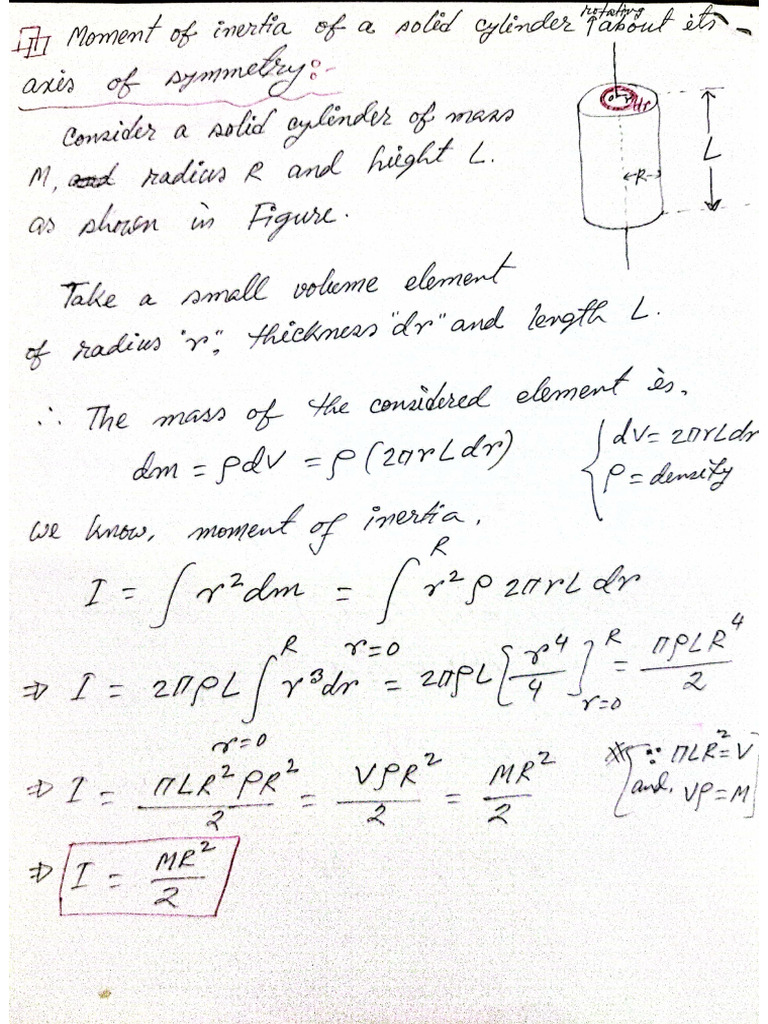 Moment of inertia of a solid cylinder rotating about its
axis of symmetry:-
Consider a solid cylinder of mass
M, and radius R and hieght L.
as shown in Figure.
r dr
R
L
Take a small volume element
of radius "r", thickness "dr" and length L.
∴ The mass of the considered element is,
dm = ρdV = ρ(2πrLdr)
{ dV = 2πrLdr
ρ = density
we know, moment of inertia,
I = ∫ r² dm = ∫_{r=0}^{R} r² ρ 2πrL dr
⇒ I = 2πρL ∫_{r=0}^{R} r³dr = 2πρL [r⁴/4]_{r=0}^{R} = πρLR⁴/2
⇒ I = πLR² ρR²/2 = VρR²/2 = MR²/2
[∵ πLR² = V
and, Vρ = M]
⇒ I = MR²/2